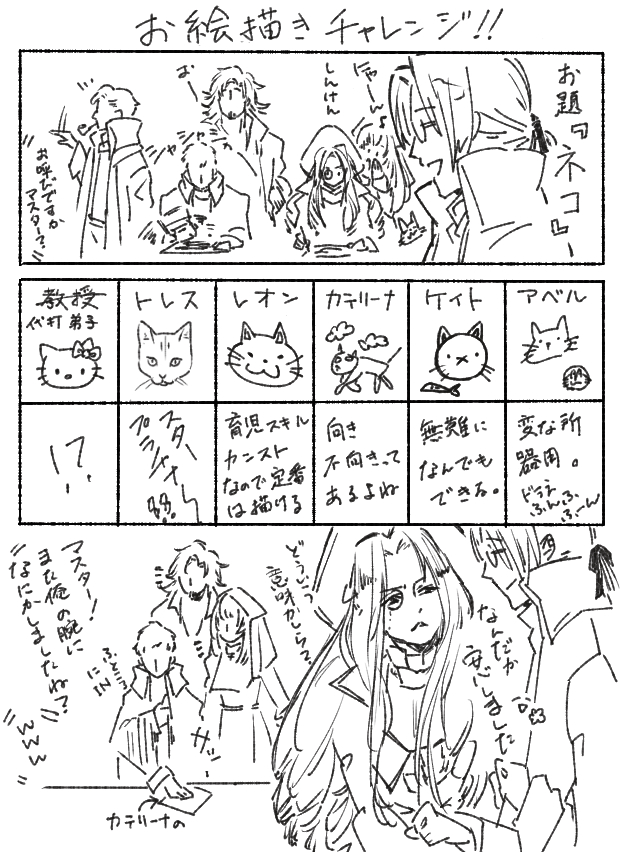 お絵描きチャレンジ!!
お題『ネコ』
にゃーん♪
しんけん
おー
シャシャシャ
お呼びですか
マスター?
教授
代打 弟子
トレス
レオン
カテリーナ
ケイト
アベル
!?
スター
プラチナ
育児スキル
カンスト
なので定番
は描ける
向き
不向きって
あるよね
無難に
なんでも
できる。
変な所
器用。
ふんふ
ふーん
どういう
意味かしら?
なんだか
安心しました
マスター!
また俺の腕に
なにかしましたね?
www
ふところ
にIN
サッ
カテリーナの